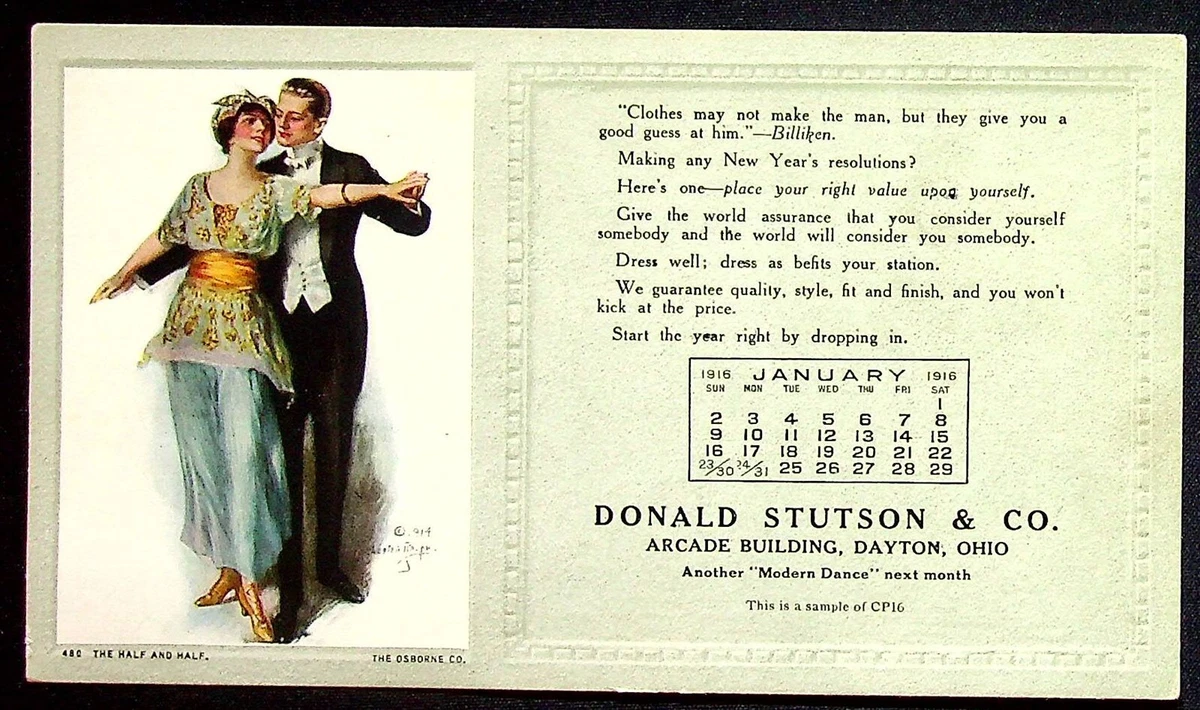 "Clothes may not make the man, but they give you a
good guess at him."—Billiken.
Making any New Year's resolutions?
Here's one—place your right value upon yourself.
Give the world assurance that you consider yourself
somebody and the world will consider you somebody.
Dress well; dress as befits your station.
We guarantee quality, style, fit and finish, and you won't
kick at the price.
Start the year right by dropping in.
1916 JANUARY 1916
SUN MON TUE WED THU FRI SAT
1
2 3 4 5 6 7 8
9 10 11 12 13 14 15
16 17 18 19 20 21 22
23/30 24/31 25 26 27 28 29
DONALD STUTSON & CO.
ARCADE BUILDING, DAYTON, OHIO
Another "Modern Dance" next month
This is a sample of CP16
© 1914
480 THE HALF AND HALF.
THE OSBORNE CO.